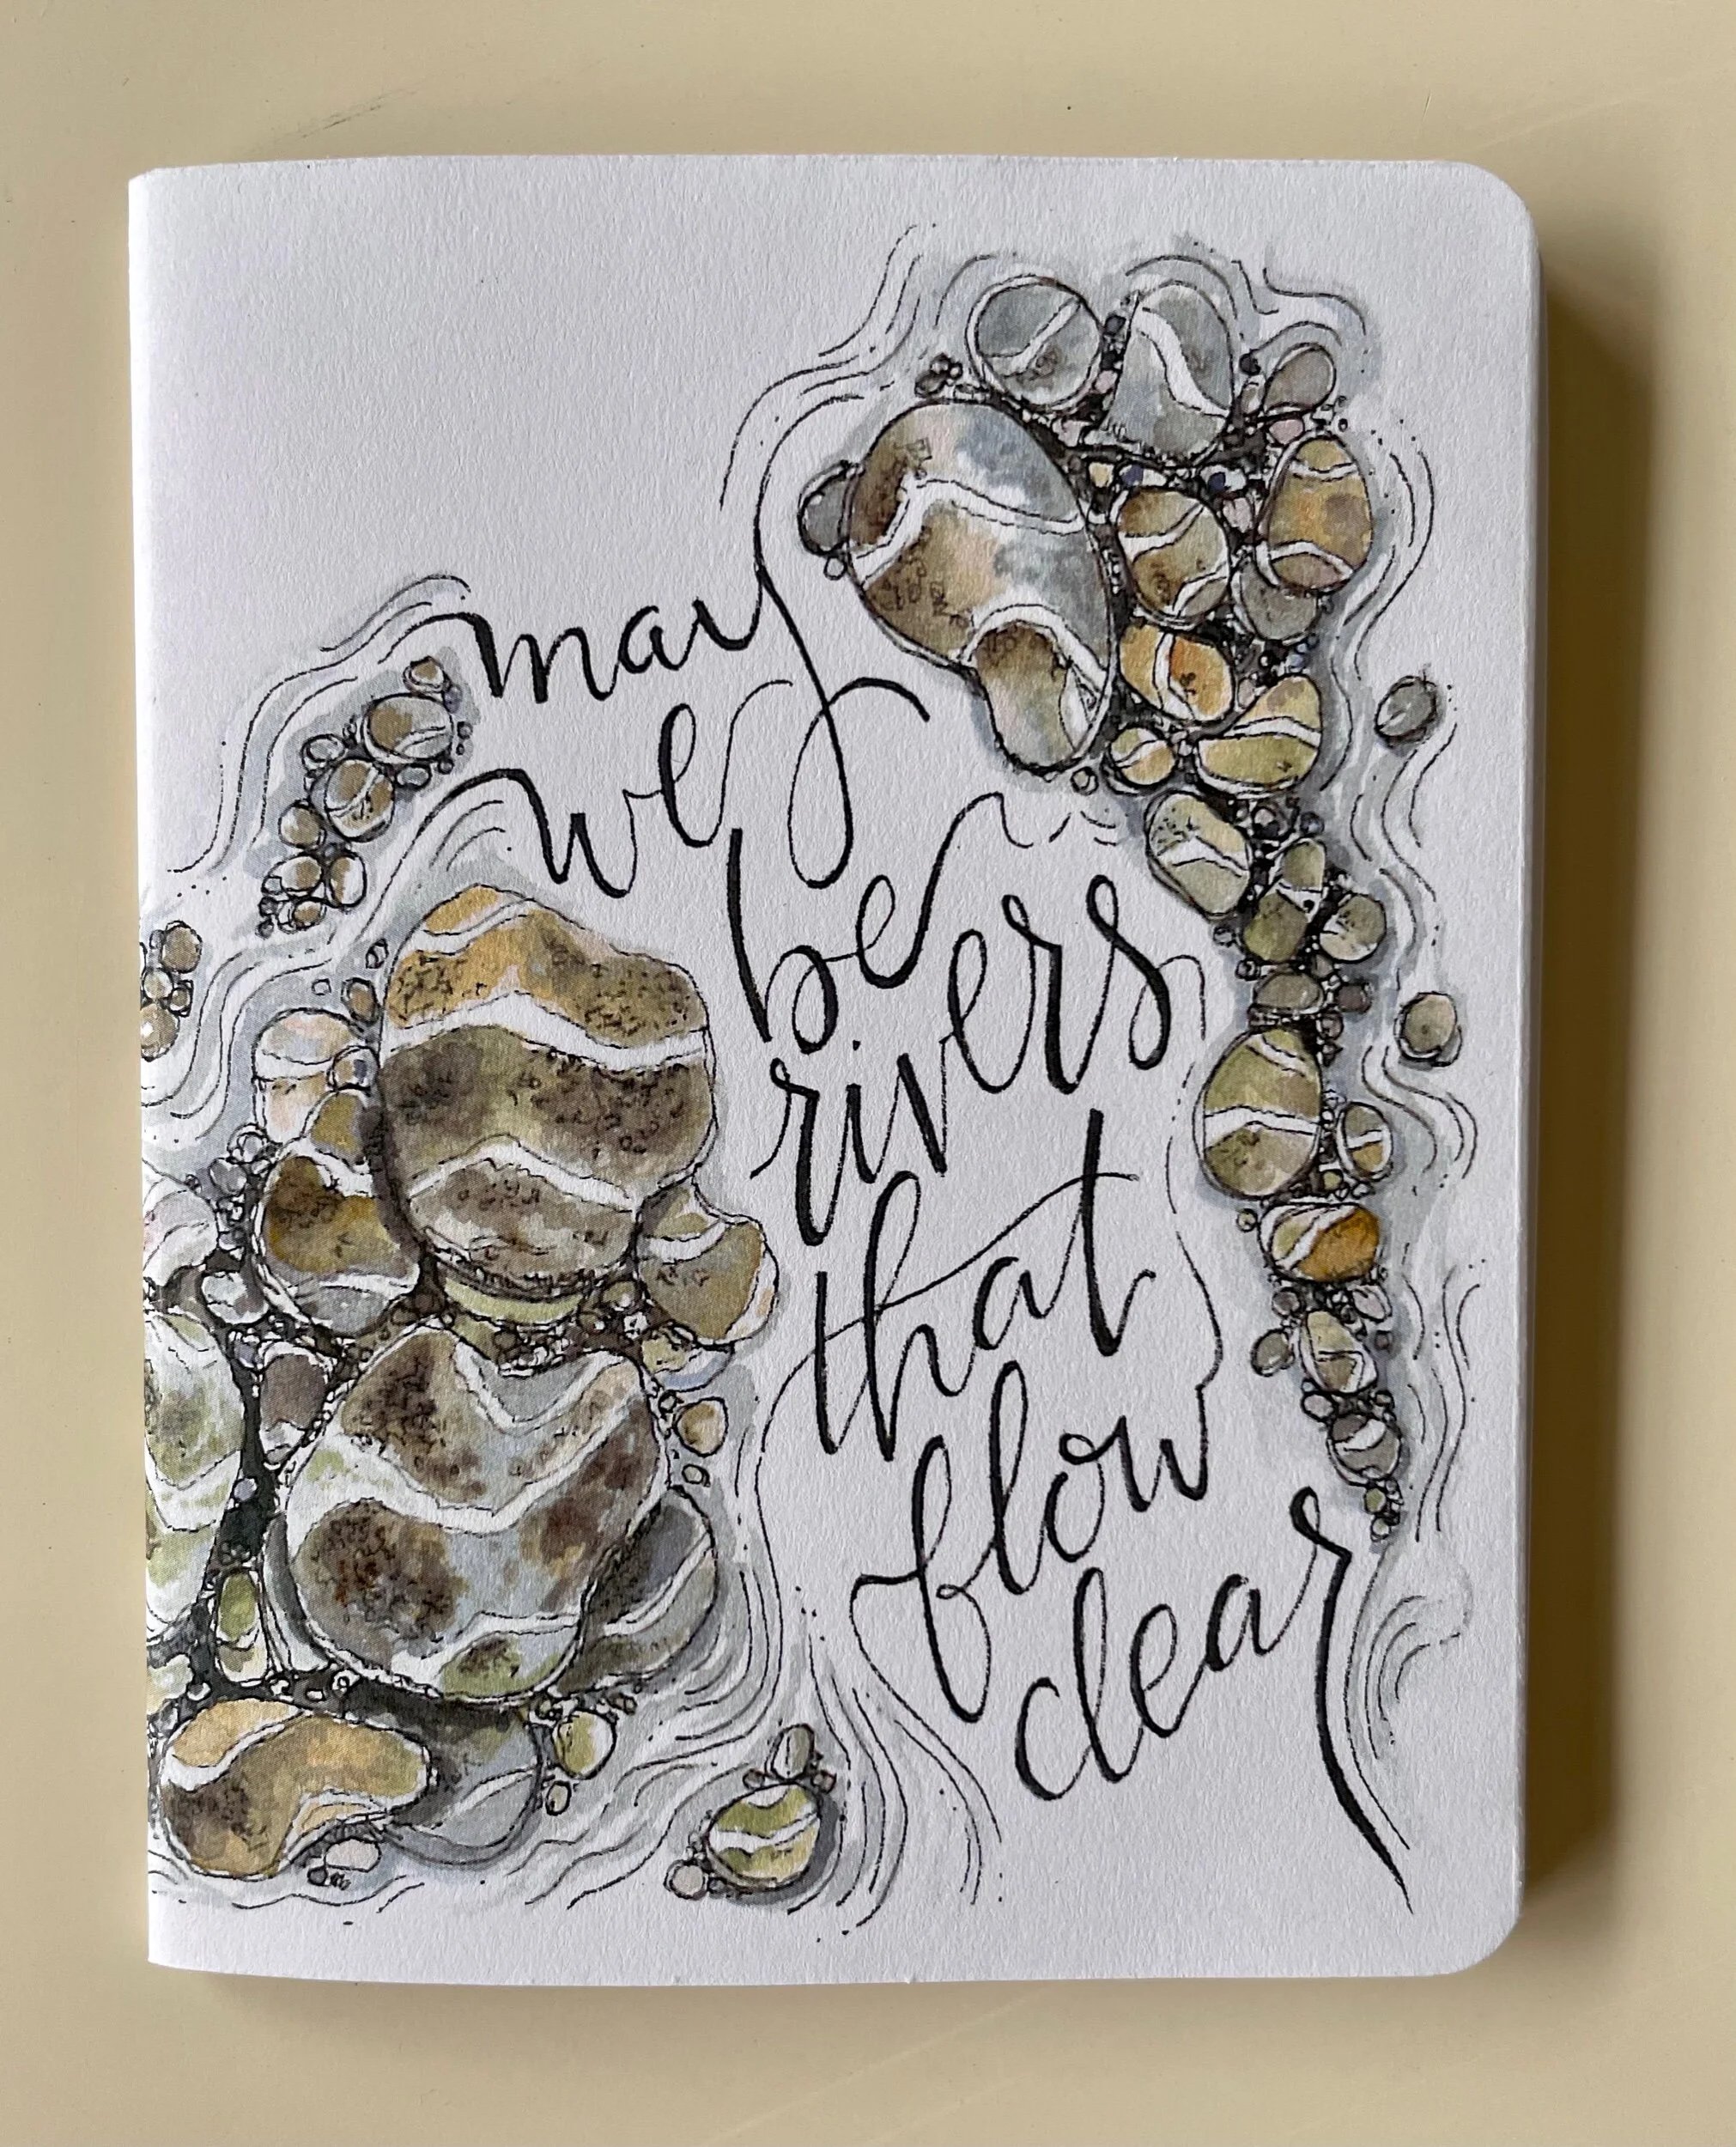 may
we
be
rivers
that
flow
clear